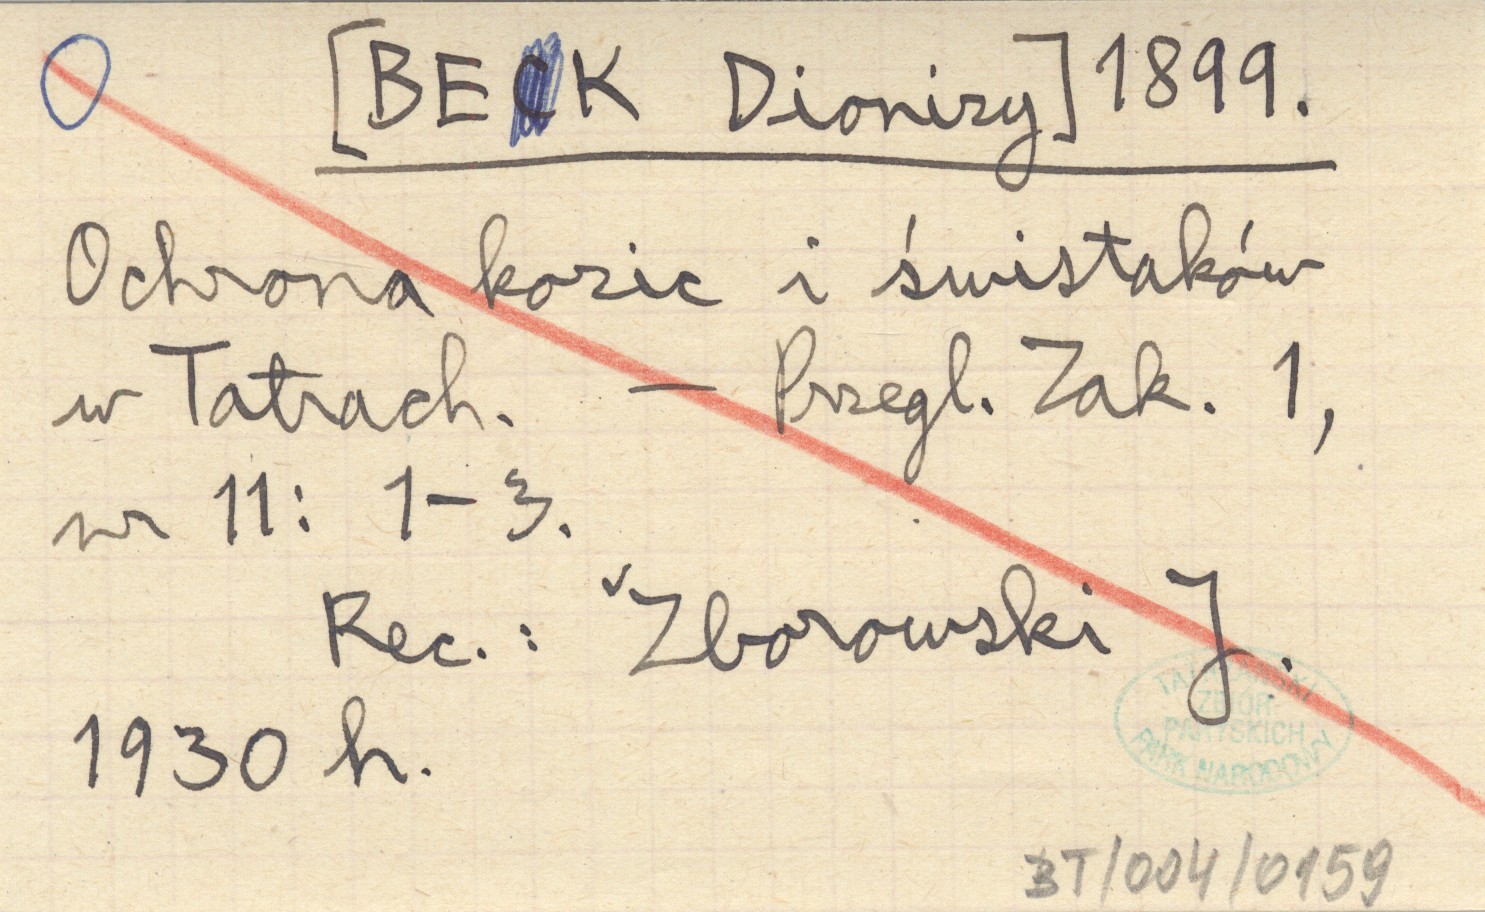 [BECK Dionizy] 1899.
Ochrona kozic i świstaków
w Tatrach. — Przegl. Zak. 1,
nr 11: 1-3.
Rec.: Zborowski J.
1930 h.
TATRZAŃSKI
ZBIÓR
PARYSKICH
PARK NARODOWY
BT/004/0159